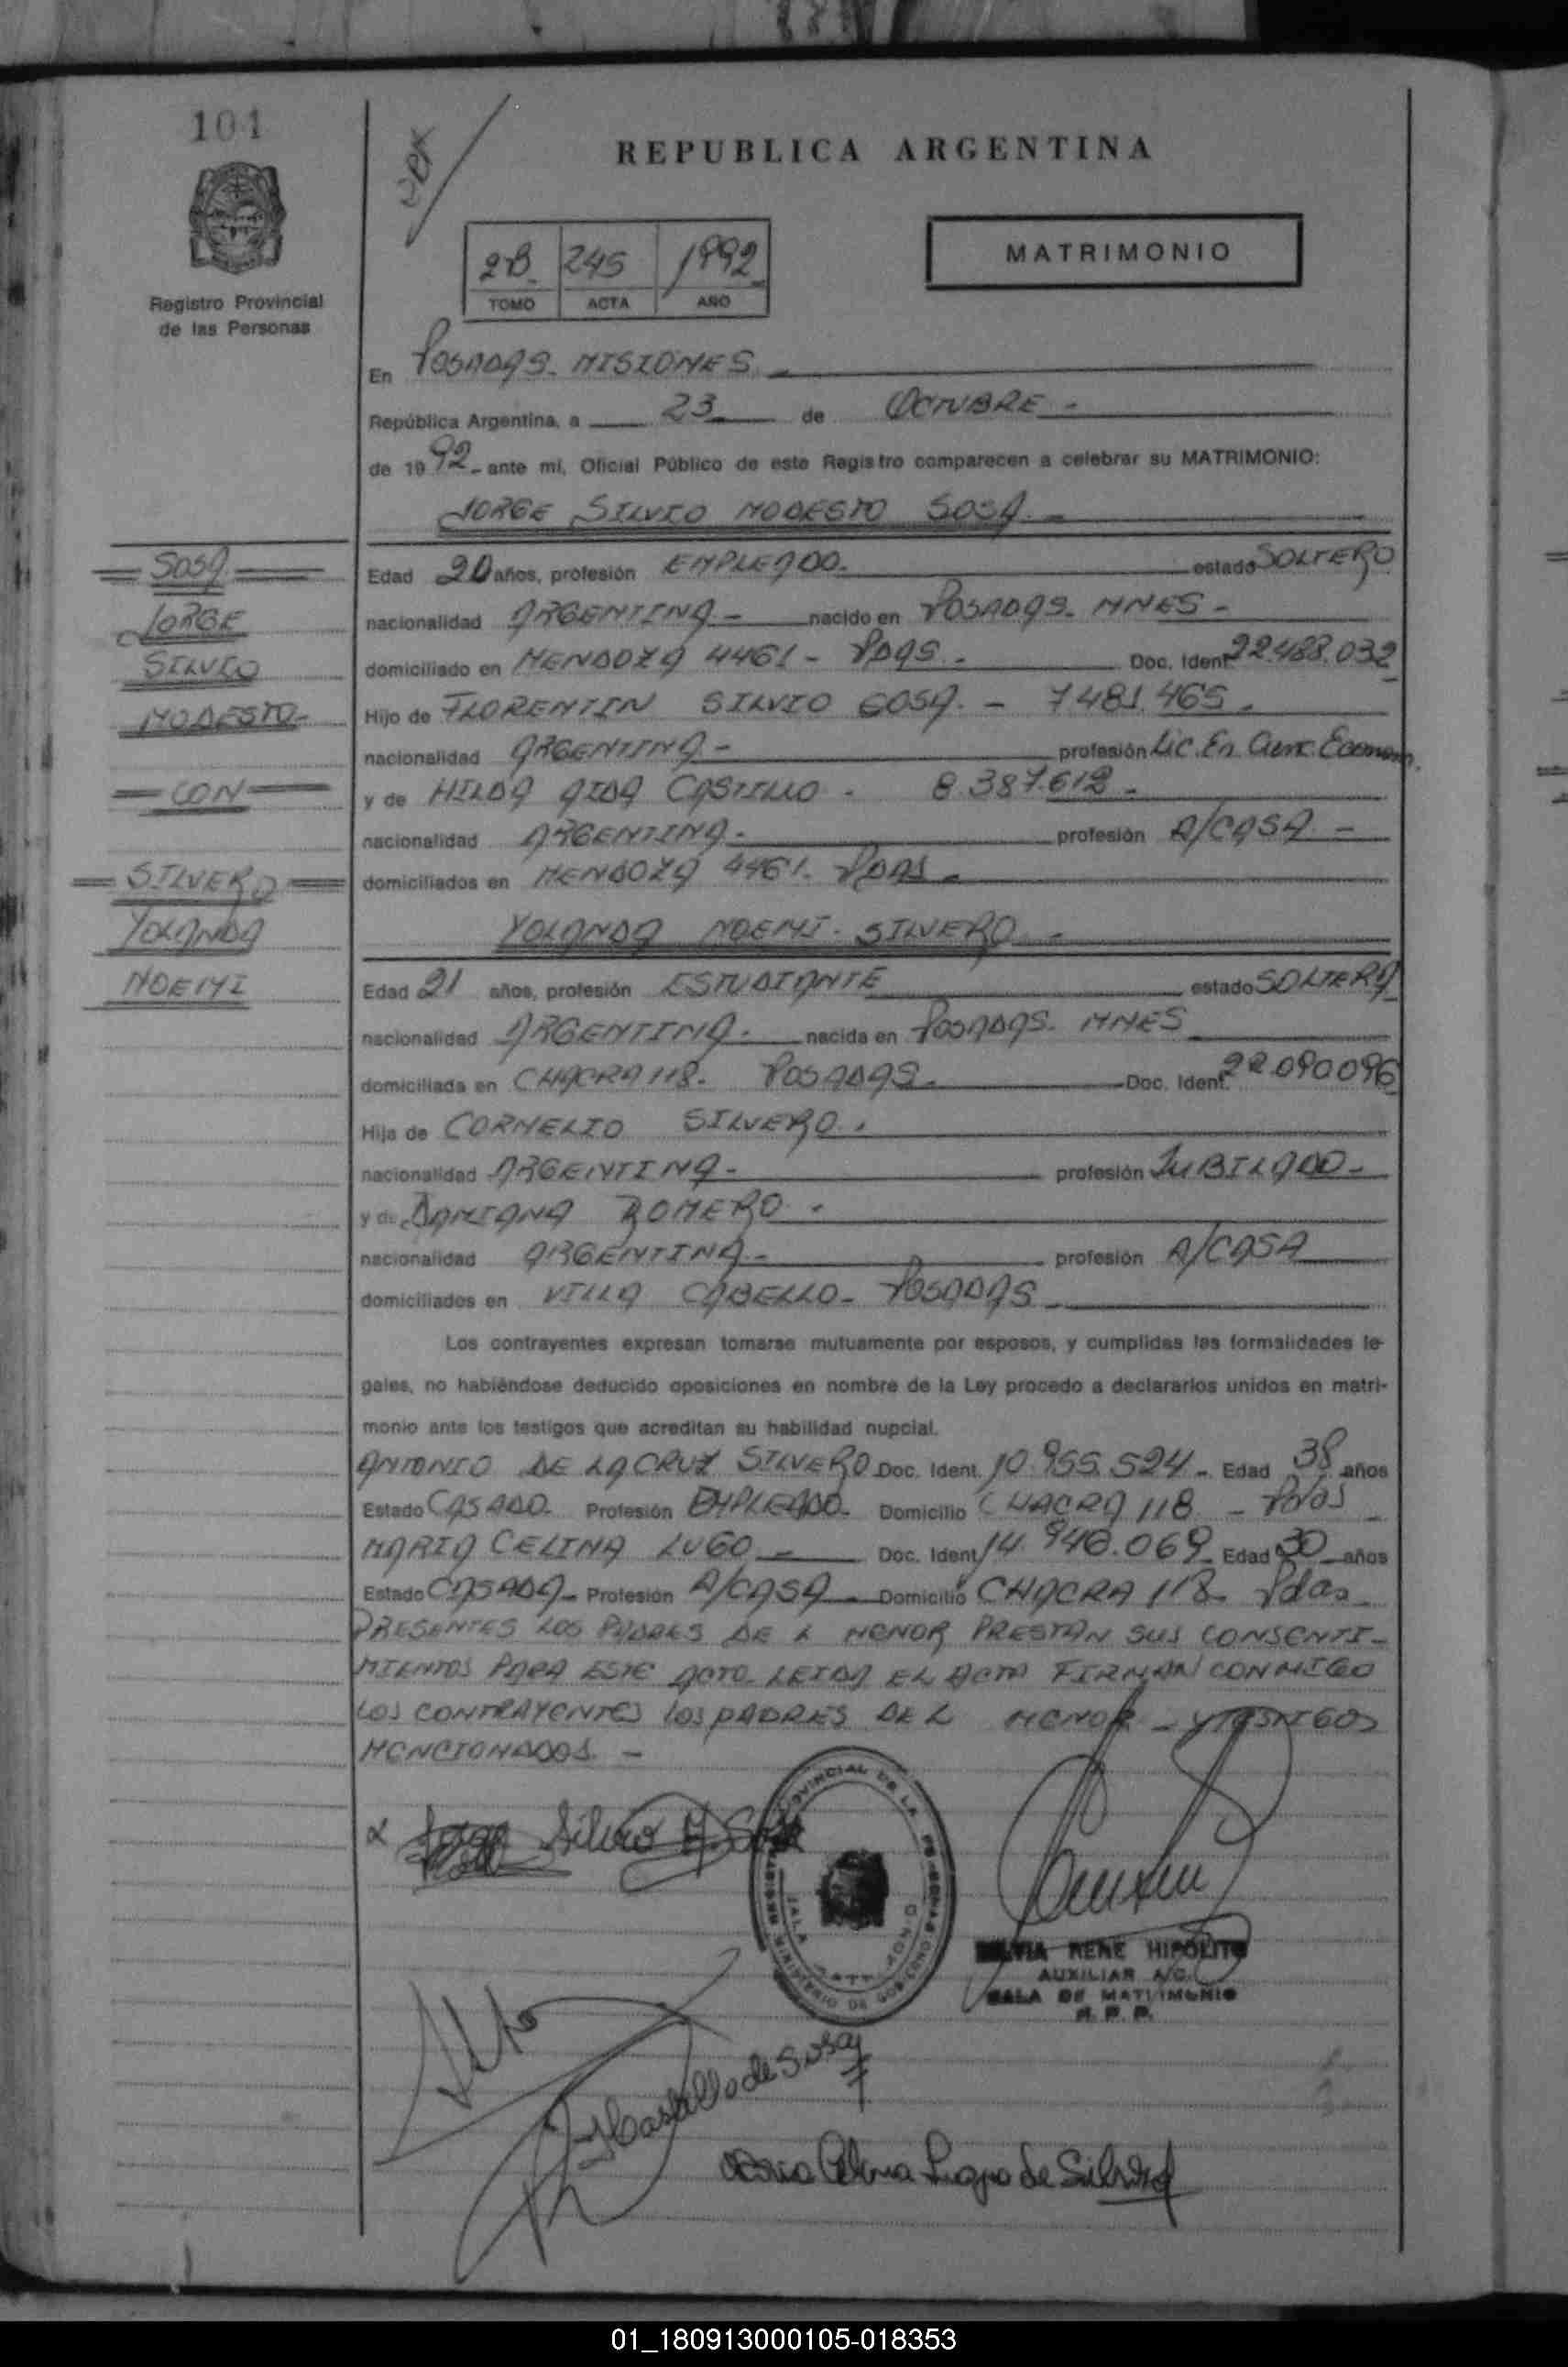 101
REPUBLICA ARGENTINA
2B 245 1992
TOMO ACTA AÑO
MATRIMONIO
Registro Provincial
de las Personas
En POSADAS - MISIONES -
República Argentina, a 23 de OCTUBRE -
de 1992 - ante mi, Oficial Público de este Registro comparecen a celebrar su MATRIMONIO:
JORGE SILVIO MODESTO SOSA -
SOSA
JORGE
SILVIO
MODESTO -
CON
SILVERO
YOLANDA
NOEMI
Edad 20 años, profesión EMPLEADO. estado SOLTERO
nacionalidad ARGENTINA - nacido en POSADAS - MNES -
domiciliado en MENDOZA 4461 - PDAS - Doc. Ident. 22.488.032
Hijo de FLORENTIN SILVIO SOSA - 7.481.465.
nacionalidad ARGENTINA - profesión Lic. En Cienc. Econom.
y de HILDA AIDA CASTILLO - 8.387.612 -
nacionalidad ARGENTINA - profesión A/CASA -
domiciliados en MENDOZA 4461 - PDAS -
YOLANDA NOEMI SILVERO -
Edad 21 años, profesión ESTUDIANTE estado SOLTERA
nacionalidad ARGENTINA - nacida en POSADAS - MNES
domiciliada en CHACRA 118 - POSADAS - Doc. Ident. 22.090096
Hija de CORNELIO SILVERO.
nacionalidad ARGENTINA - profesión JUBILADO -
y de DAMIANA ROMERO -
nacionalidad ARGENTINA - profesión A/CASA
domiciliados en VILLA CABELLO - POSADAS -
Los contrayentes expresan tomarse mutuamente por esposos, y cumplidas las formalidades le-
gales, no habiéndose deducido oposiciones en nombre de la Ley procedo a declararlos unidos en matri-
monio ante los testigos que acreditan su habilidad nupcial.
ANTONIO DE LA CRUZ SILVERO Doc. Ident. 10.955.524 - Edad 38 años
Estado CASADO - Profesión EMPLEADO - Domicilio CHACRA 118 - Pdas -
MARIA CELINA LUGO - Doc. Ident. 14.946.069 Edad 30 años
Estado CASADA - Profesión A/CASA - Domicilio CHACRA 118 - Pdas -
PRESENTES LOS PADRES DE L MENOR PRESTAN SUS CONSENTI-
MIENTOS PARA ESTE ACTO. LEIDA EL ACTA FIRMAN CONMIGO
LOS CONTRAYENTES LOS PADRES DE L MENOR - Y TESTIGOS
MENCIONADOS. -
Jorge Silvio M. Sosa
RENE HIPOLITO
AUXILIAR A/C.
SALA DE MATRIMONIO
R. P. P.
H Castillo de Sosa
Maria Celina Lugo de Silvero
01_180913000105-018353